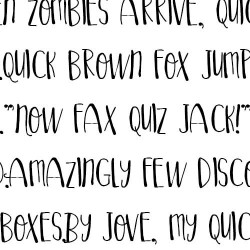 EN ZOMBIES ARRIVE, QUIC
.QUICK BROWN FOX JUMP
."NOW FAX QUIZ JACK!"
.AMAZINGLY FEW DISCO
BOXES.BY JOVE, MY QUIC